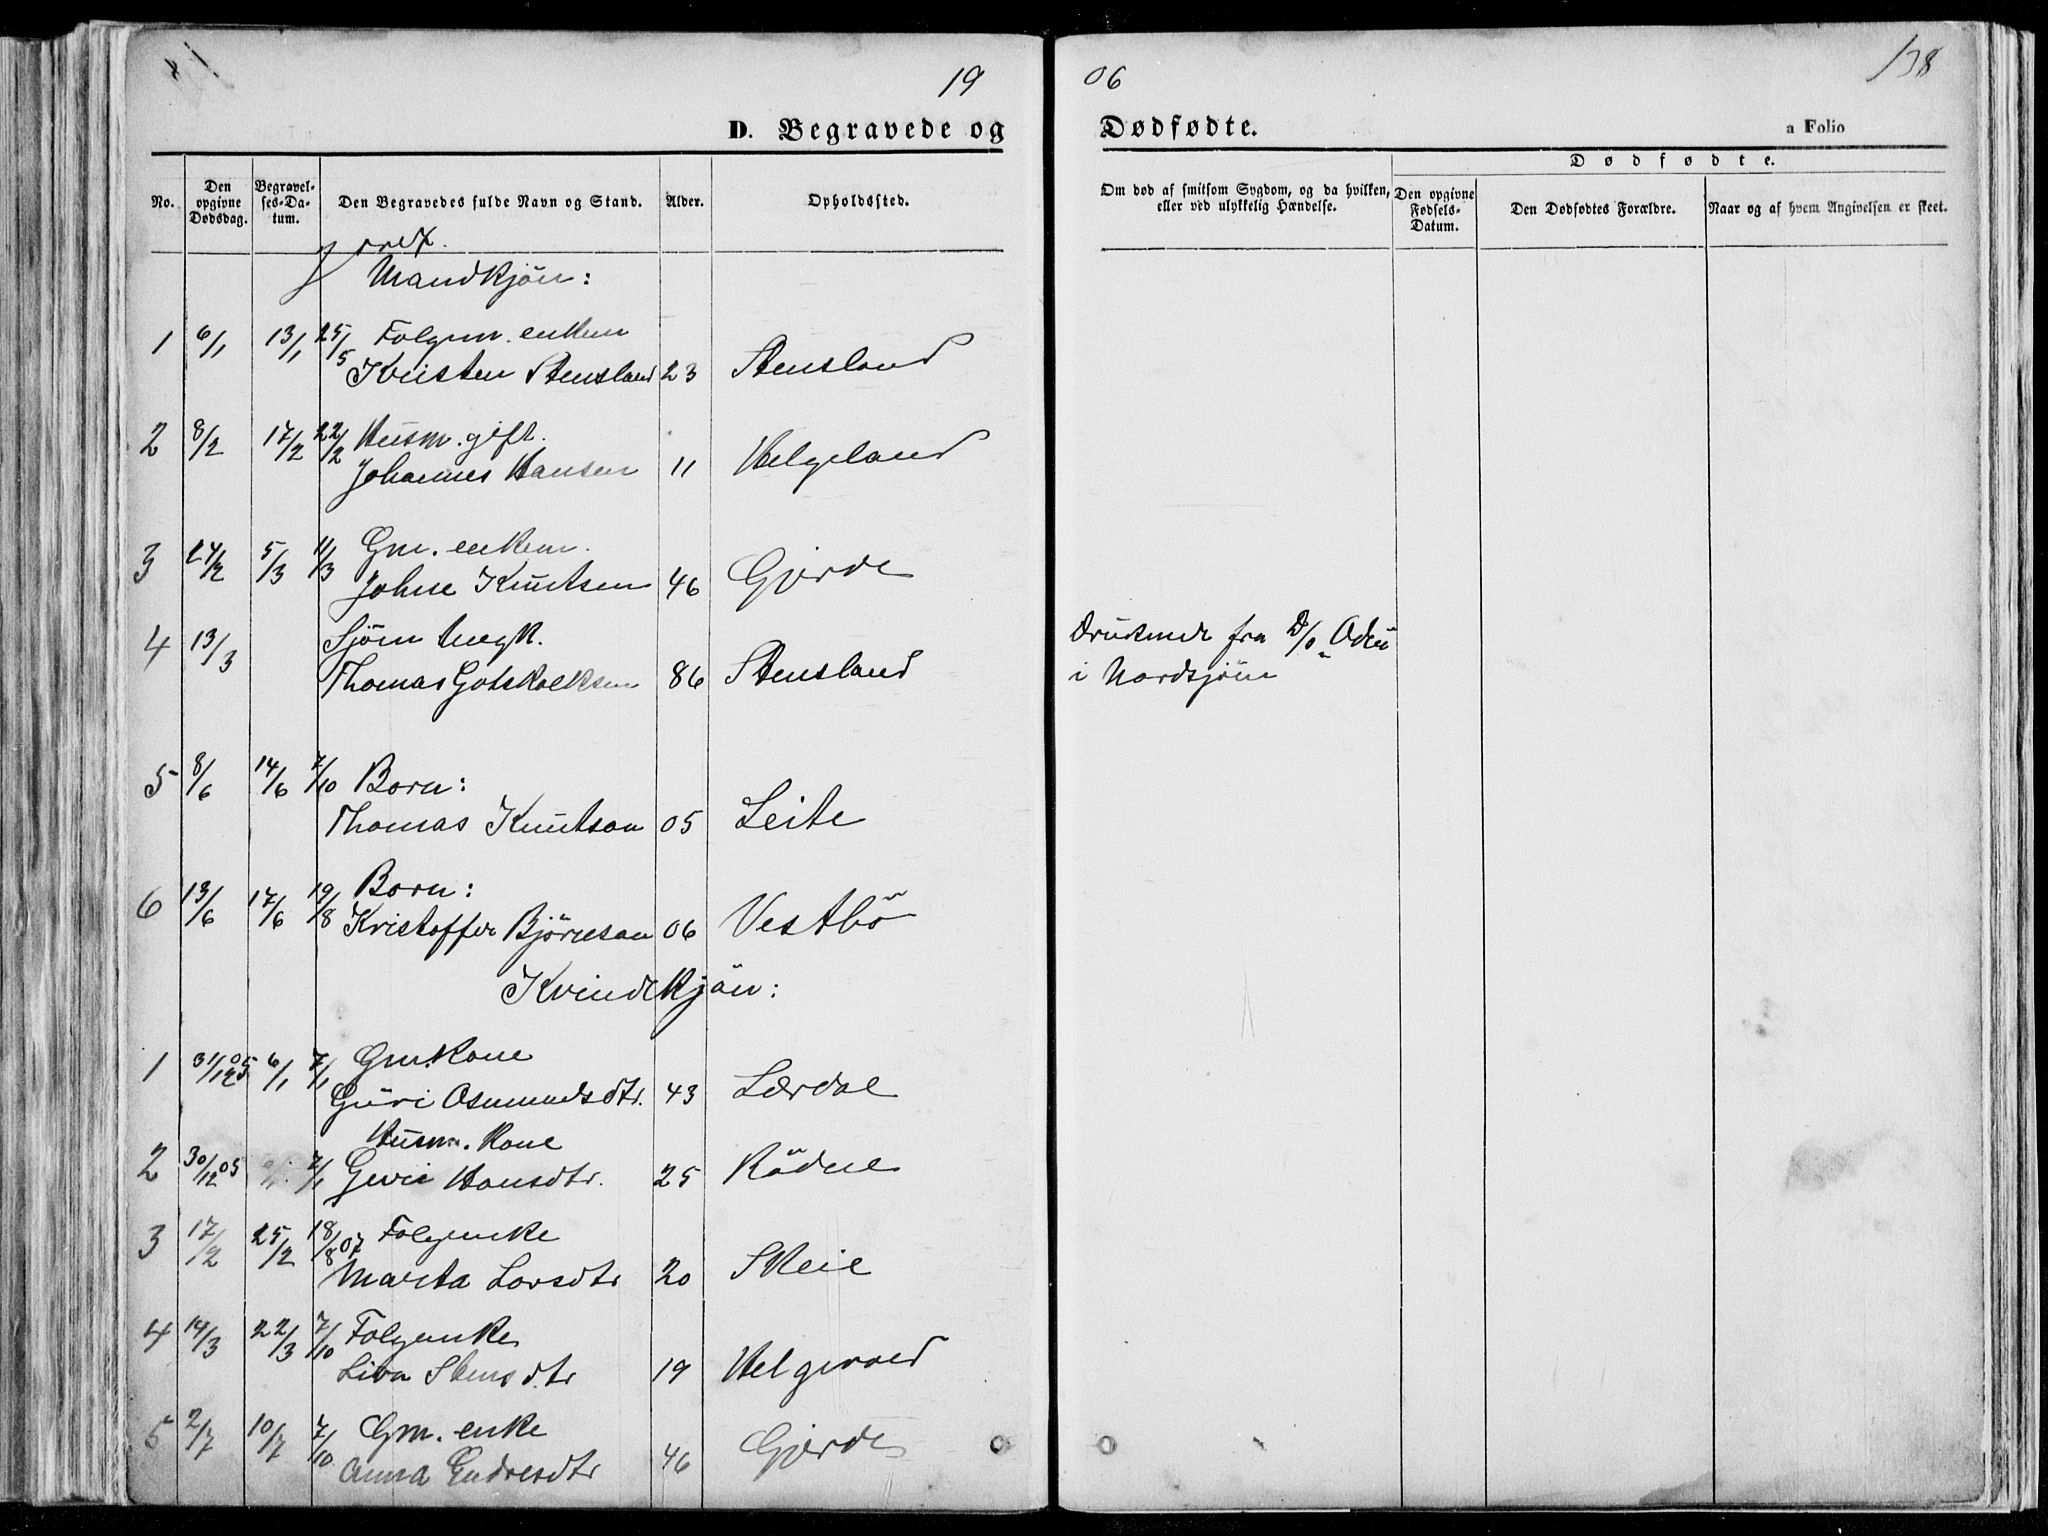 19 06
138
D. Begravede og Dødfødte.
a Folio
Dødfødte.
No. | Den opgivne Dødsdag. | Begravelses-Datum. | Den Begravedes fulde Navn og Stand. | Alder. | Opholdssted. | Om død af smitsom Sygdom, og da hvilken, eller ved ulykkelig Hændelse. | Den opgivne Fødsels-Datum. | Den Dødfødtes Forældre. | Naar og af hvem Angivelsen er skeet.
Mandkjön:
1 6/1 13/1 25/5 Folgm. enkem
Kristen Stensland 23 Stensland
2 8/2 17/2 22/2 Husm. gift.
Johannes Hansen 11 Helgeland
3 24/2 5/3 11/3 Gm. enkem.
Johne Knutsen 46 Gjerde
4 13/3 Sjöm ungk.
Thomas Gotskalksen 86 Stensland Druknede fra D/s "Odin"
i Nordsjöen
5 8/6 14/6 7/10 Born:
Thomas Knutson 05 Leite
6 13/6 17/6 19/8 Born:
Kristoffer Björnson 06 Vestbö
Kvindekjön:
1 31/12 05 6/1 7/1 Gm. Kone
Guri Osmundsdtr. 43 Lærdal
Husm. Kone
2 30/12 05 7/1 Hansdtr. 25 Rödne
3 17/2 25/2 18/8 07 Folgenke
Marta Larsdtr 20 Skeie
4 14/3 22/3 7/10 Folgenke
Stensdtr 19 Helgevold
5 2/7 10/7 7/10 Gm. enke
Anna Endresdtr 46 Gjerde